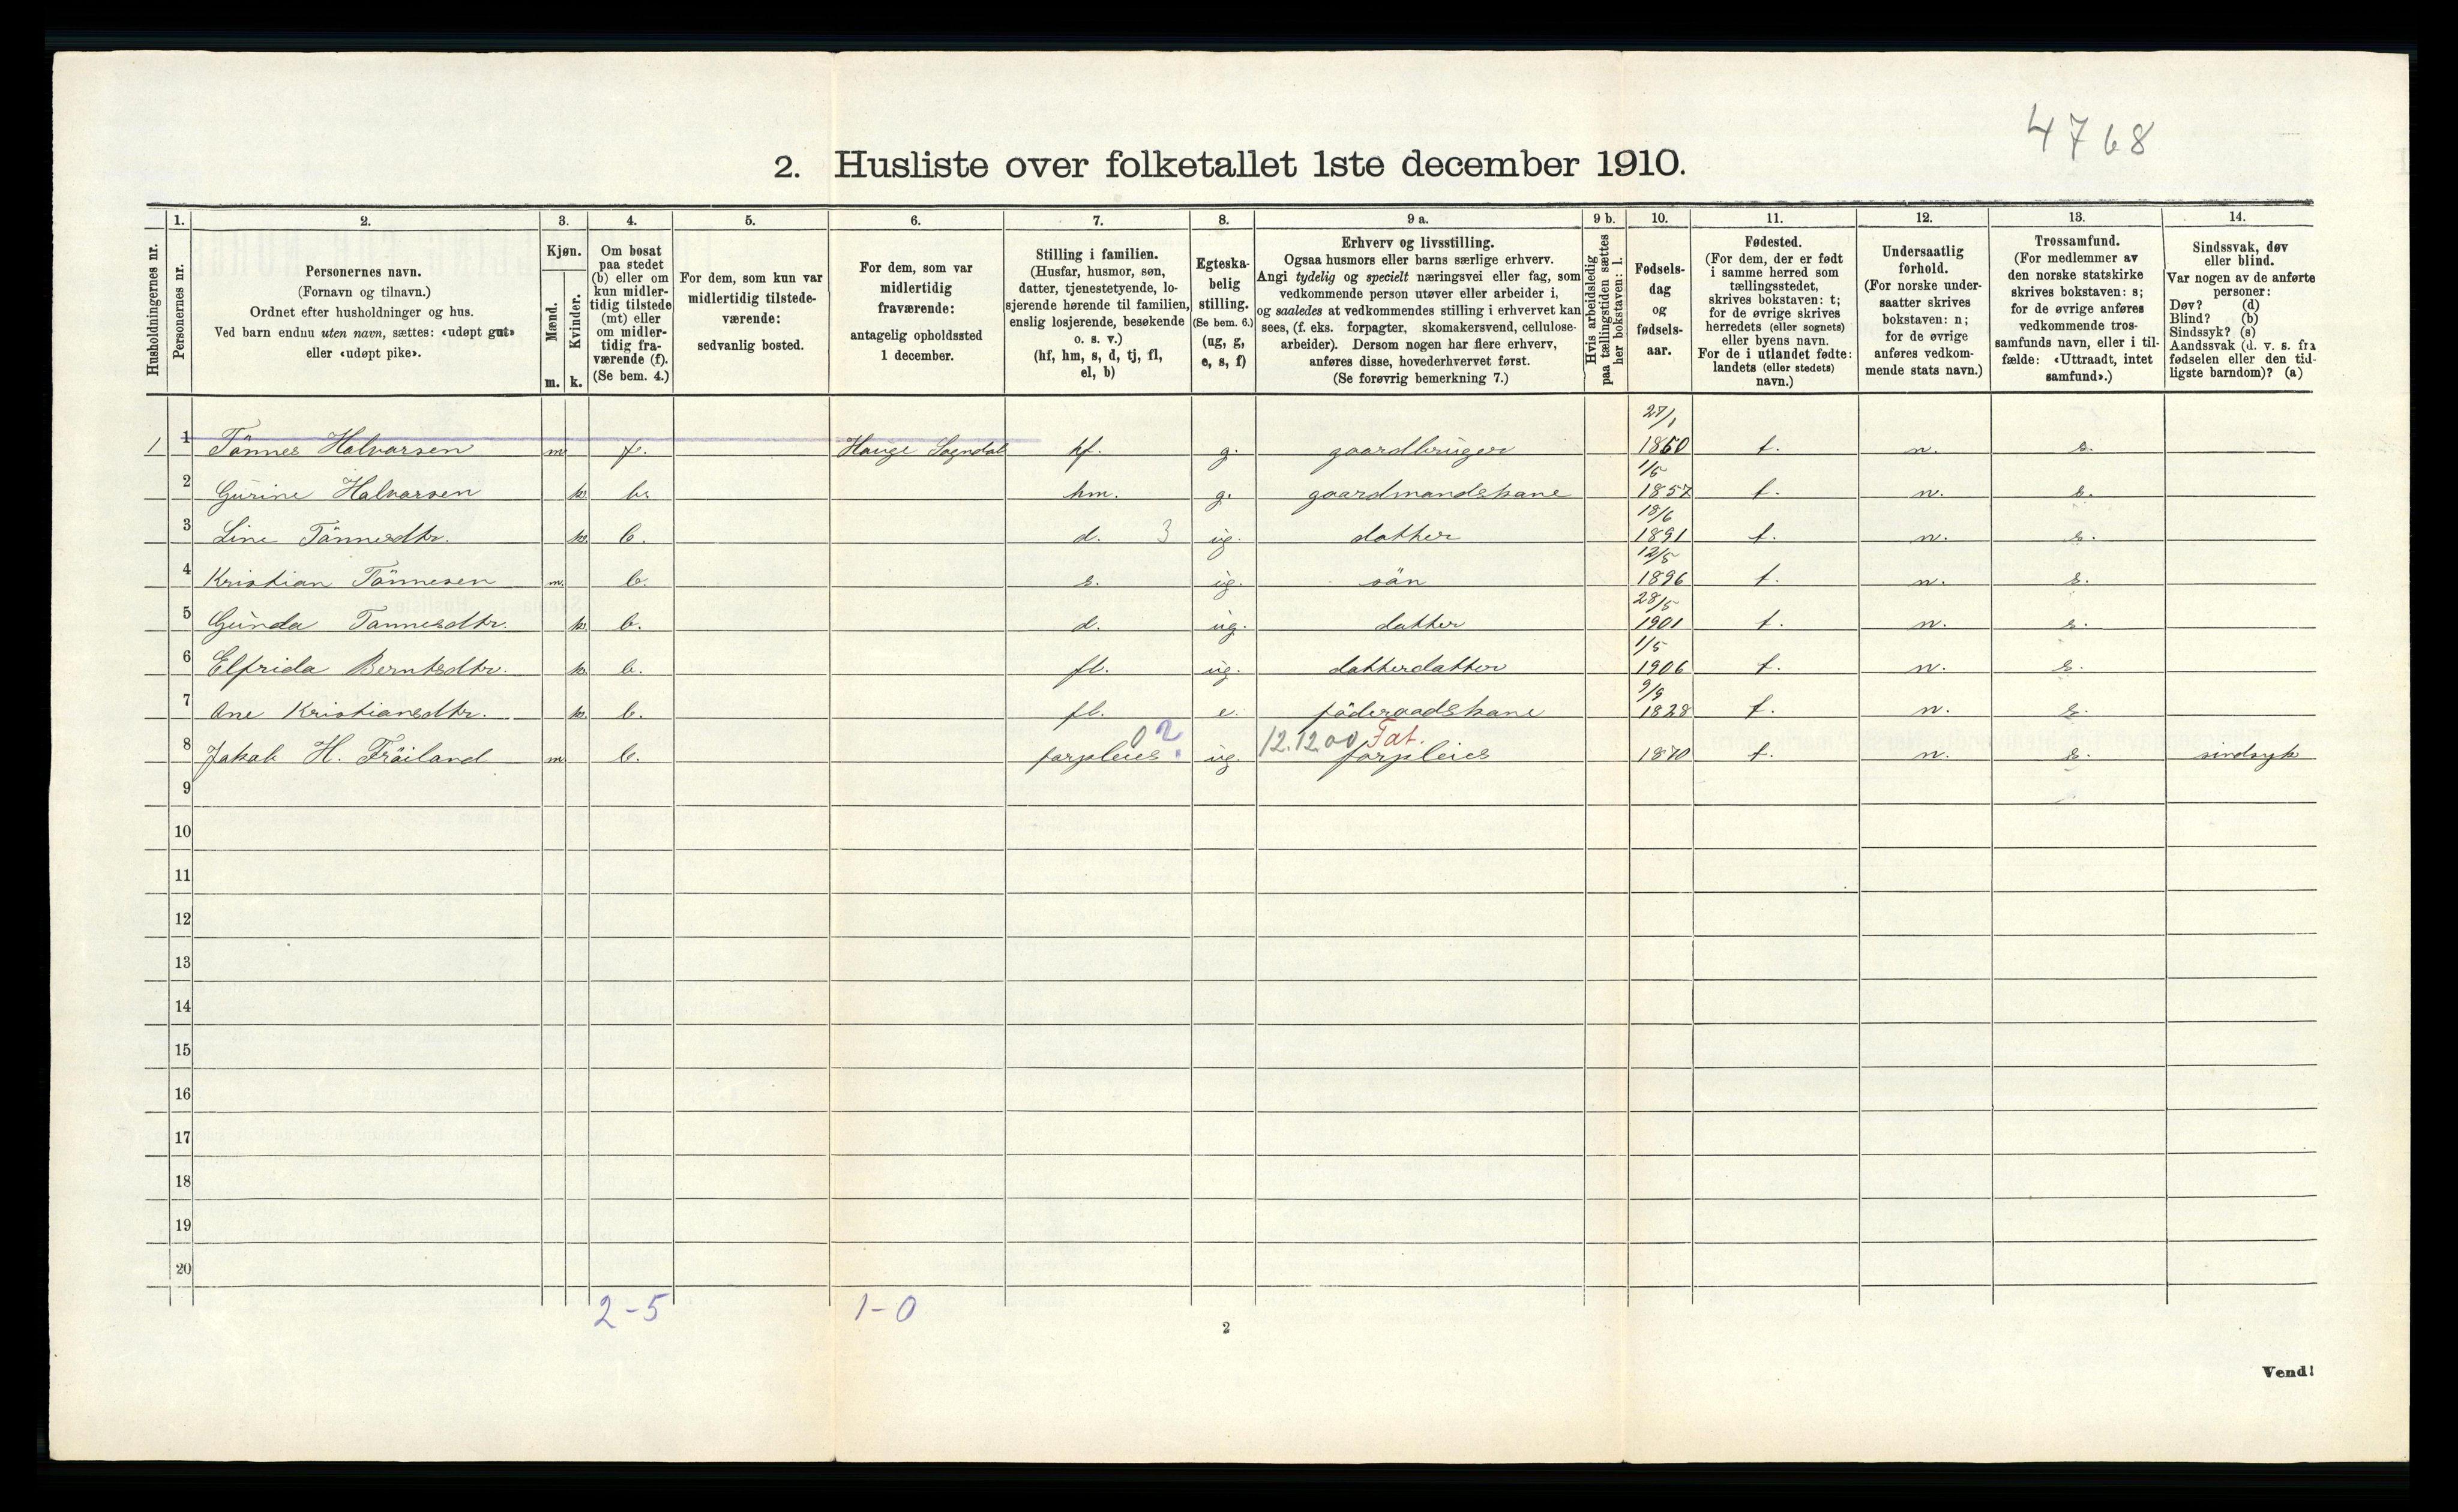 4768
2. Husliste over folketallet 1ste december 1910.
Husholdningernes nr.
1.
Personernes nr.
2.
Personernes navn.
(Fornavn og tilnavn.)
Ordnet efter husholdninger og hus.
Ved barn endnu uten navn, sættes: «udøpt gut»
eller «udøpt pike».
3.
Kjøn.
Mænd.
m.
Kvinder.
k.
4.
Om bosat
paa stedet
(b) eller om
kun midler-
tidig tilstede
(mt) eller
om midler-
tidig fra-
værende (f).
(Se bem. 4.)
5.
For dem, som kun var
midlertidig tilstede-
værende:
sedvanlig bosted.
6.
For dem, som var
midlertidig
fraværende:
antagelig opholdssted
1 december.
7.
Stilling i familien.
(Husfar, husmor, søn,
datter, tjenestetyende, lo-
sjerende hørende til familien,
enslig losjerende, besøkende
o. s. v.)
(hf, hm, s, d, tj, fl,
el, b)
8.
Egteska-
belig
stilling.
(Se bem. 6.)
(ug, g,
e, s, f)
9 a.
Erhverv og livsstilling.
Ogsaa husmors eller barns særlige erhverv.
Angi tydelig og specielt næringsvei eller fag, som
vedkommende person utøver eller arbeider i,
og saaledes at vedkommendes stilling i erhvervet kan
sees, (f. eks. forpagter, skomakersvend, cellulose-
arbeider). Dersom nogen har flere erhverv,
anføres disse, hovederhvervet først.
(Se forøvrig bemerkning 7.)
9 b.
Hvis arbeidsledig
paa tællingstiden sættes
her bokstaven: l.
10.
Fødsels-
dag
og
fødsels-
aar.
11.
Fødested.
(For dem, der er født
i samme herred som
tællingsstedet,
skrives bokstaven: t;
for de øvrige skrives
herredets (eller sognets)
eller byens navn.
For de i utlandet fødte:
landets (eller stedets)
navn.)
12.
Undersaatlig
forhold.
(For norske under-
saatter skrives
bokstaven: n;
for de øvrige
anføres vedkom-
mende stats navn.)
13.
Trossamfund.
(For medlemmer av
den norske statskirke
skrives bokstaven: s;
for de øvrige anføres
vedkommende tros-
samfunds navn, eller i til-
fælde: «Uttraadt, intet
samfund».)
14.
Sindssvak, døv
eller blind.
Var nogen av de anførte
personer:
Døv? (d)
Blind? (b)
Sindssyk? (s)
Aandssvak (d. v. s. fra
fødselen eller den tid-
ligste barndom)? (a)
1 1 Tönnes Halvorsen m f. Hauge Sogndal hf. g. gaardbruger 27/1 1860 t. n. s.
2 Gurine Halvorsen k. b. hm. g. gaardmandskone 1/5 1857 t. n. s.
3 Line Tönnesdtr. k. b. d. 3 ug. datter 18/6 1891 t. n. s.
4 Kristian Tönnesen m. b. s. ug. sön 12/5 1896 t. n. s.
5 Gunda Tönnesdtr. k. b. d. ug. datter 28/5 1901 t. n. s.
6 Elfrida Berntsdtr. k. b. fl. ug. datterdatter 1/5 1906 t. n. s.
7 Ane Kristiansdtr. k. b. fl. e. föderaadskone 9/9 1828 t. n. s.
0 2 12.1200 Fat.
8 Jakob H. Fröiland m b. forpleies ug. forpleies 1870 t. n. s. sindsyk
9
10
11
12
13
14
15
16
17
18
19
20
2-5 1-0
2
Vend!